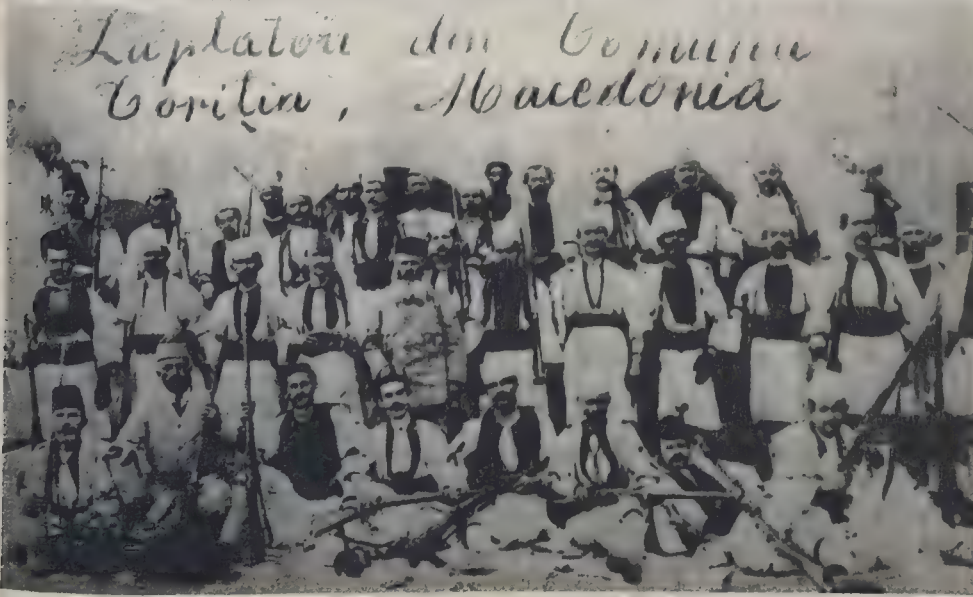 Luptatori din Comuna
Coritia, Macedonia